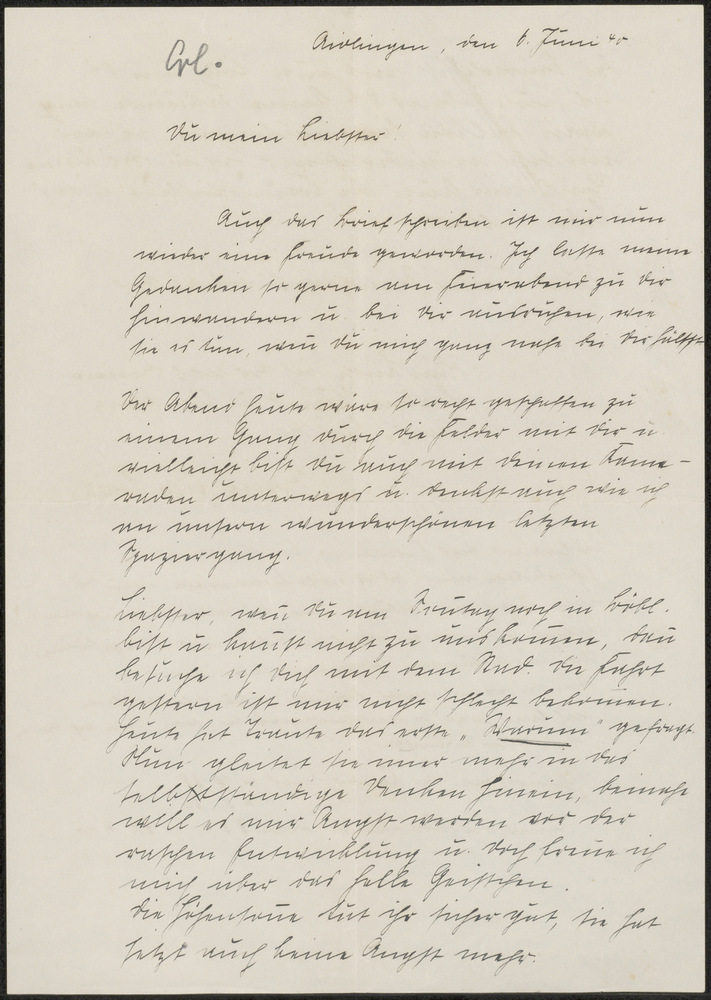 Erl.
Aidlingen, den 6. Juni 40
Du mein Liebster!
Auch das Briefschreiben ist mir nun
wieder eine Freude geworden. Ich lasse meine
Gedanken so gerne am Feierabend zu Dir
hinwandern u. bei Dir ausruhen, wie
sie es tun, wenn Du mich ganz nahe bei Dir hältst.
Der Abend heute wäre so recht geschaffen zu
einem Gang durch die Felder mit Dir u.
vielleicht bist Du auch mit Deinen Kame-
raden unterwegs u. denkst auch wie ich
an unsern wunderschönen letzten
Spaziergang.
Liebster, wenn Du am Sonntag noch in Böbl.
bist u. kannst nicht zu uns kommen, dann
besuche ich Dich mit dem Rad. Die Fahrt
gestern ist mir nicht schlecht bekommen.
Heute hat Traute das erste „Warum" gefragt.
Nun gleitet sie immer mehr in das
selbstständige Denken hinein, beinahe
will es mir Angst werden vor der
raschen Entwicklung u. doch freue ich
mich über das helle Geistchen.
Die Höhensonne tut ihr sicher gut, sie hat
jetzt auch keine Angst mehr.